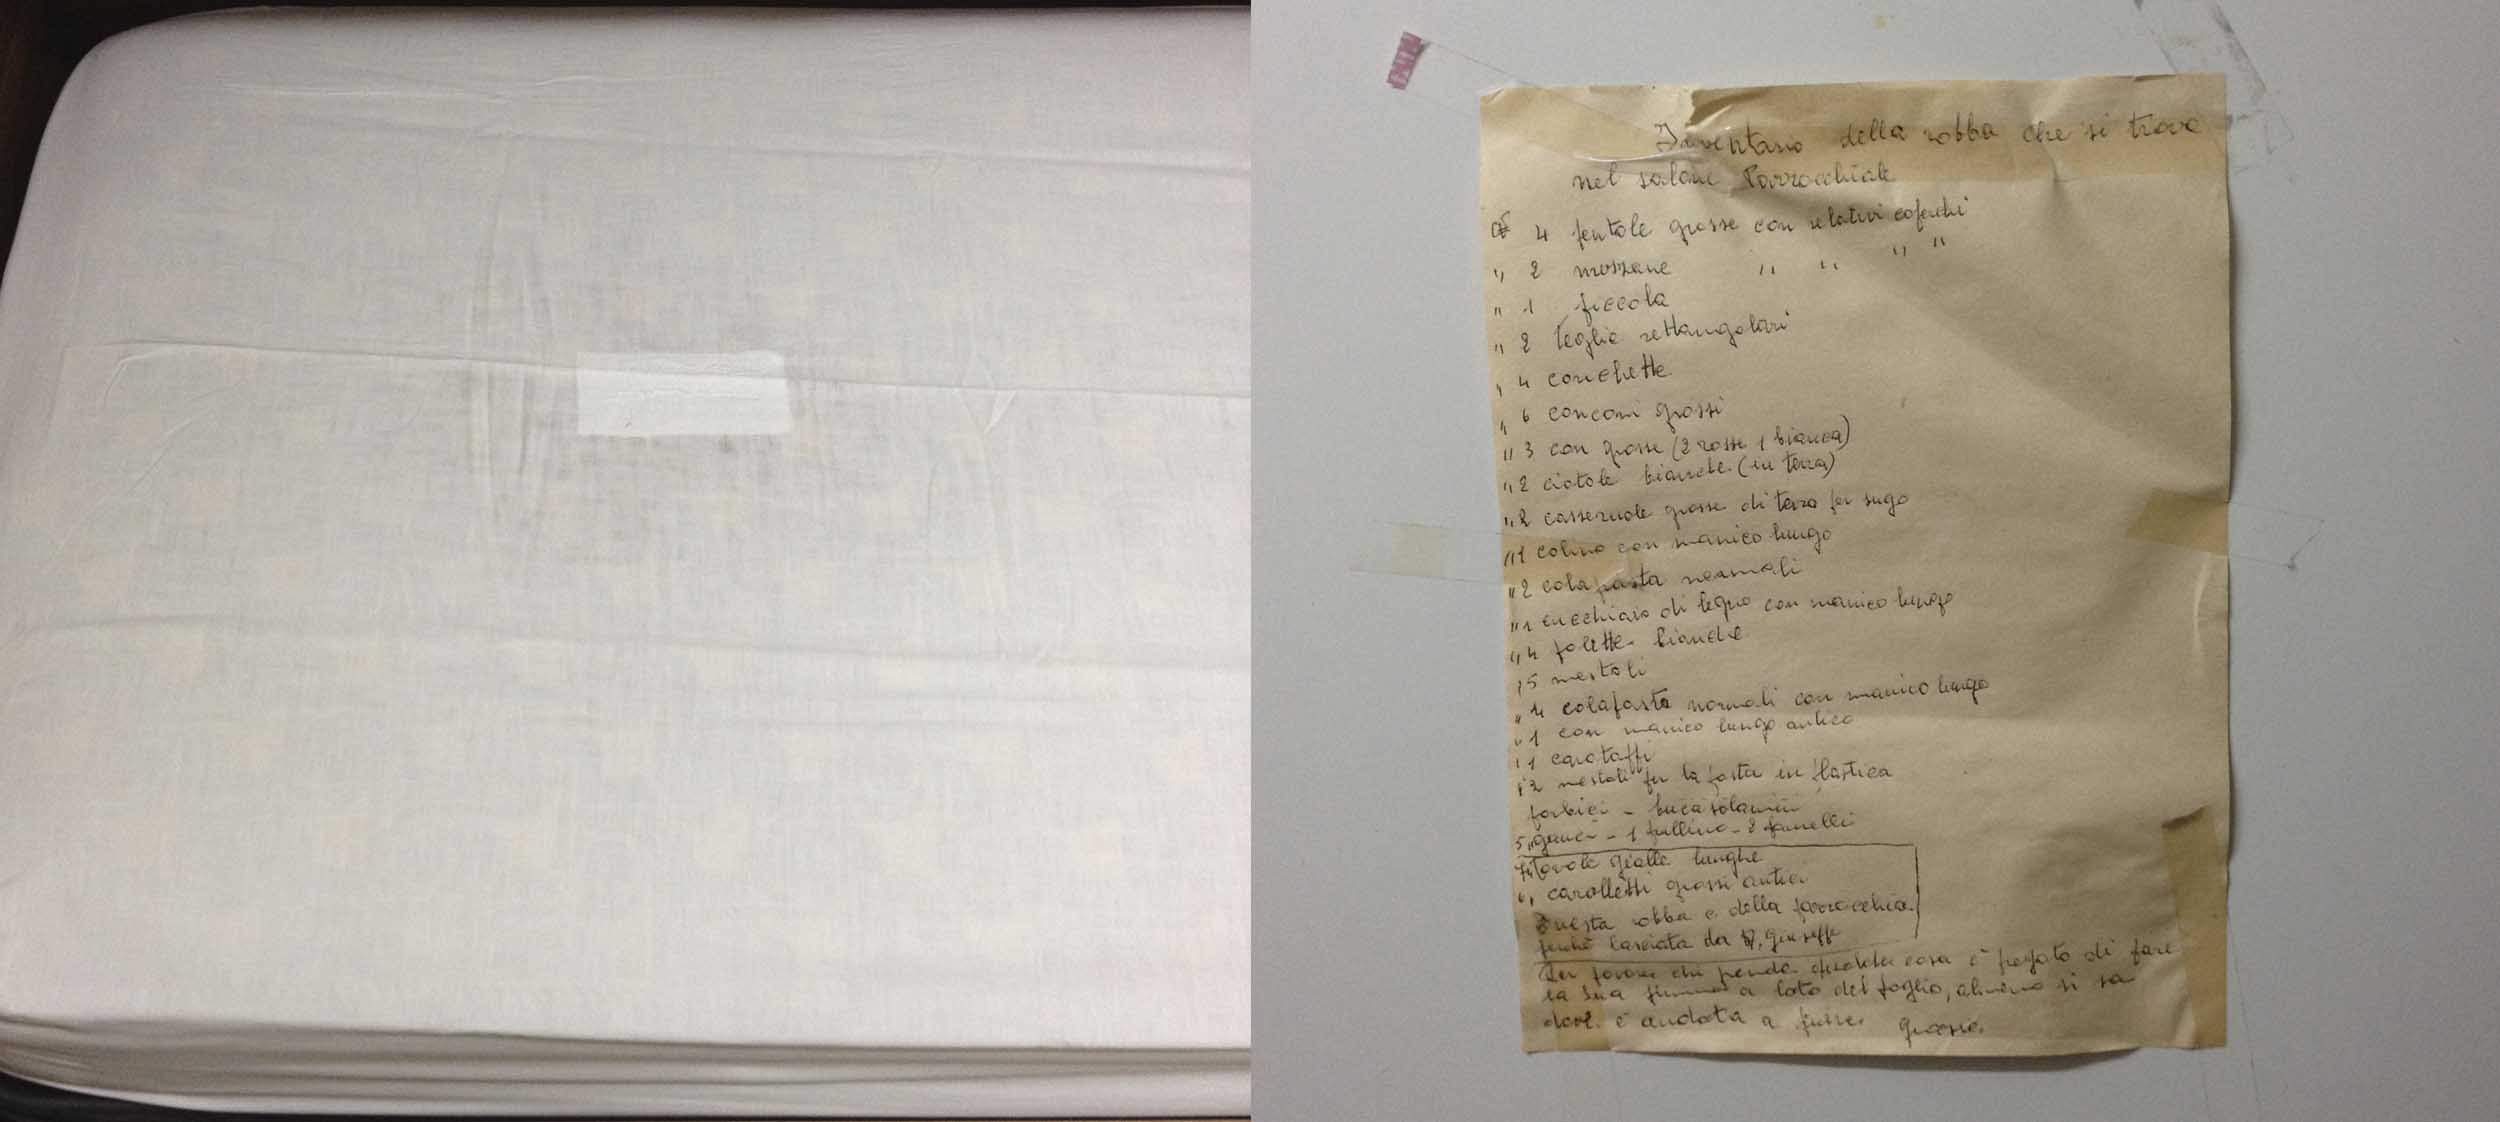 Inventario della robba che si trova
nel salone Parrocchiale
4 pentole grosse con relativi coperchi
" 2 mezzane " " " "
" 1 piccola
" 2 teglie rettangolari
" 4 conchette
" 6 conconi grossi
" 3 con grosse (2 rosse 1 bianca)
" 2 ciotole bianche (in terra)
" 2 casseruole grosse di terra per sugo
" 1 colino con manico lungo
" 2 colapasta normali
" 1 cucchiaio di legno con manico lungo
" 4 palette bianche
" 5 mestoli
" 4 colapasta normali con manico lungo
" 1 con manico lungo antico
" 1 cavatappi
" 2 mestoli per la pasta in plastica
forbici - buca
5 " ganci - 1 - 2
Tavole gialle lunghe
" cavalletti grossi antichi
Questa robba e della parrocchia.
perchè lasciata da D. Giuseppe
Per favore chi prende qualche cosa è pregato di fare
la sua firma a lato del foglio, almeno si sa
dove è andata a finire. grazie.